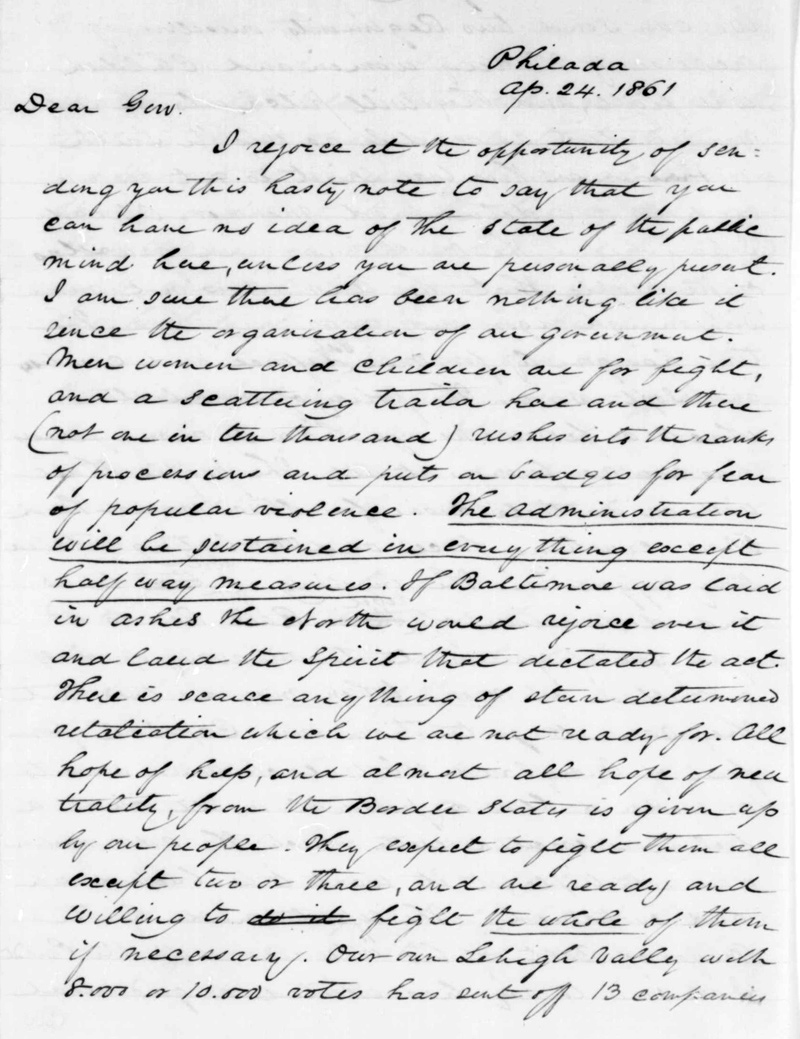 Philada
Ap. 24. 1861
Dear Gov.
I rejoice at the opportunity of sen-
ding you this hasty note to say that you
can have no idea of the state of the public
mind here, unless you are personally present.
I am sure there has been nothing like it
since the organisation of our government.
Men women and children are for fight,
and a scattering traitor here and there
(not one in ten thousand) rushes into the ranks
of processions and puts on badges for fear
of popular violence. The administration
will be sustained in everything except
half way measures. If Baltimore was laid
in ashes the North would rejoice over it
and laud the spirit that dictated the act.
There is scarce anything of stern determined
retaliation which we are not ready for. All
hope of help, and almost all hope of neu
trality, from the Border States is given up
by our people. They expect to fight them all
except two or three, and are ready and
willing to do it fight the whole of them
if necessary. Our own Lehigh Valley with
8.000 or 10.000 votes has sent off 13 companies